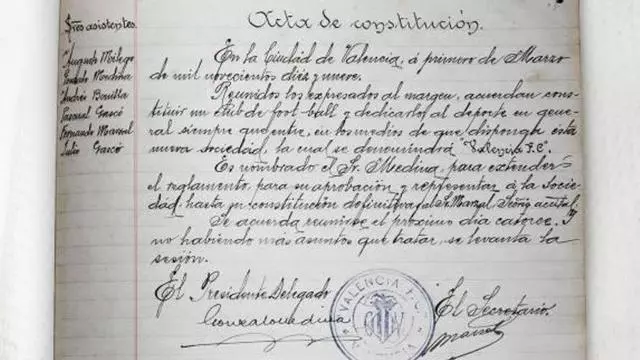 Sres asistentes.
Augusto Milego
Gonzalo Medina
Andrés Bonilla
Pascual Gascó
Fernando Marzal
Julio Gascó
Acta de constitución.
En la Ciudad de Valencia, á primero de Marzo
de mil novecientos diez y nueve.
Reunidos los expresados al margen, acuerdan cons-
tituir un Club de foot-ball y dedicarlos al deporte en gene-
ral siempre que entre, en los medios de que disponga esta
nueva sociedad, la cual se denominará "Valencia F.C"
Es nombrado el Sr. Medina, para extender
el reglamento, para su aprobación y representar á la Socie-
dad, hasta su constitución definitiva, y al Sr. Marzal,
Se acuerda reunirse el próximo dia catorce. Y
no habiendo mas asuntos que tratar, se levanta la
sesión.
El Presidente Delegado
Gonzalo Medina
VALENCIA F.C.
El Secretario.
Marzal